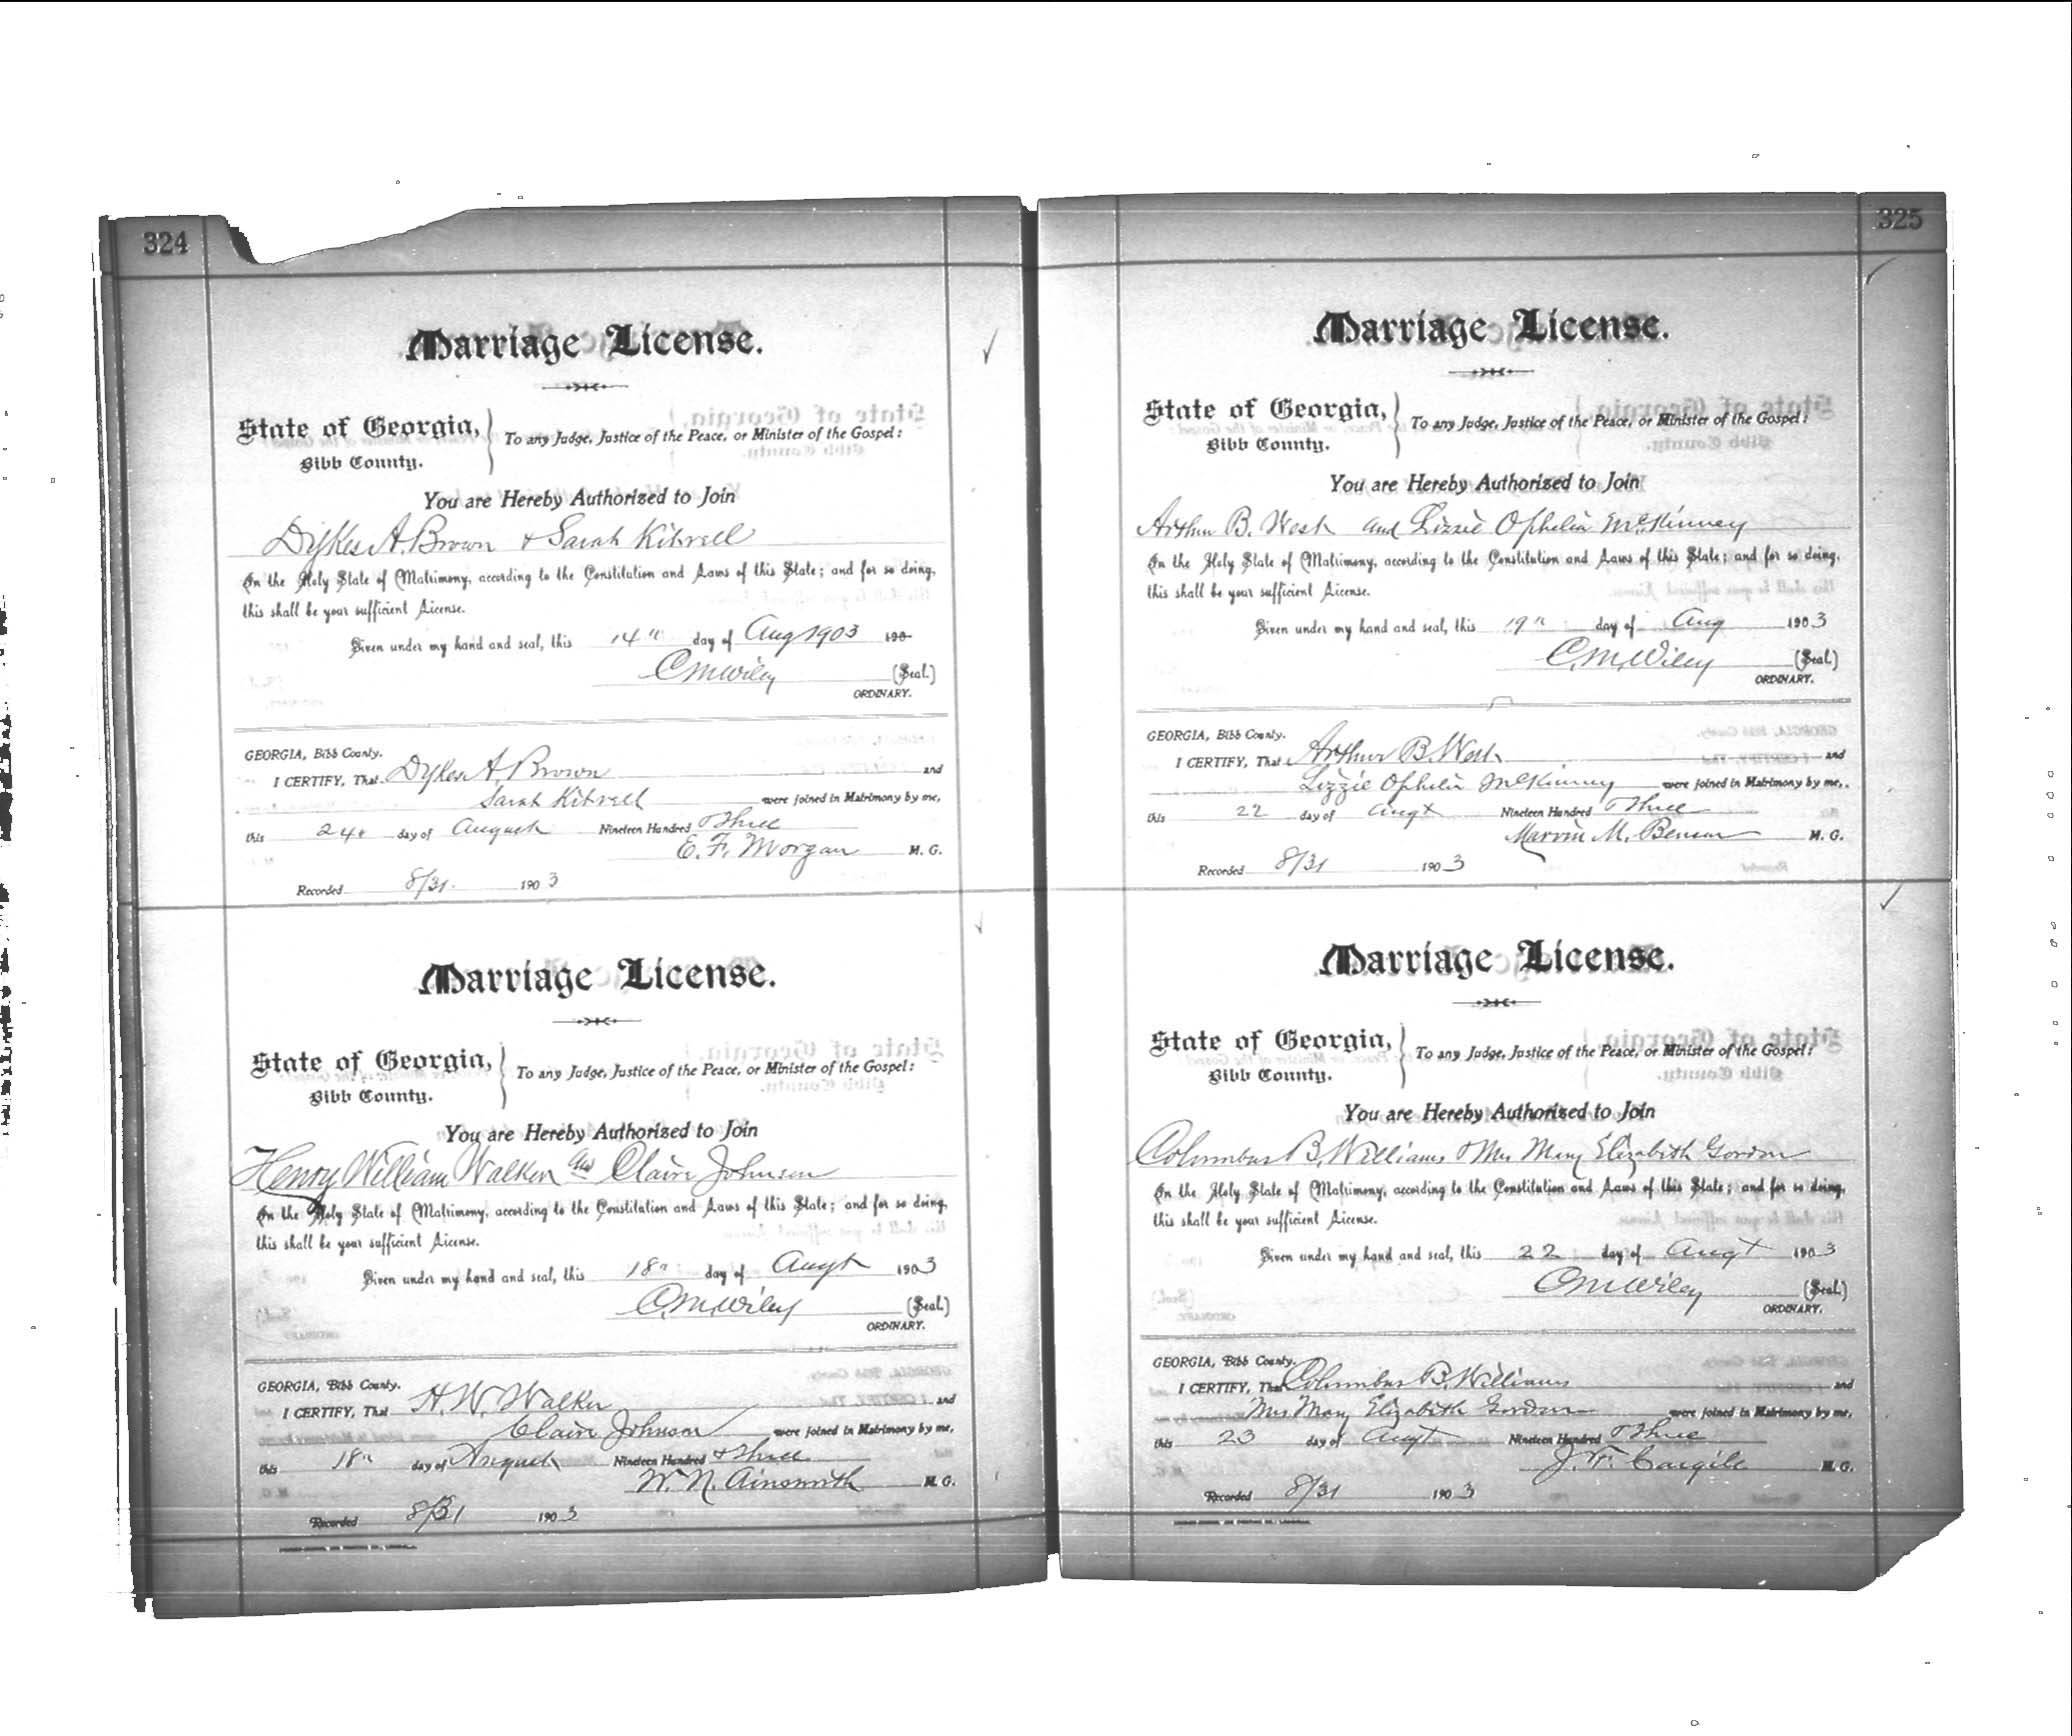 324
Marriage License.
State of Georgia,
Bibb County.
To any Judge, Justice of the Peace, or Minister of the Gospel:
You are Hereby Authorized to Join
Dykes A. Brown & Sarah Kitrell
In the Holy State of Matrimony, according to the Constitution and Laws of this State; and for so doing,
this shall be your sufficient License.
Given under my hand and seal, this 14" day of Aug 1903 190
C M Wiley (Seal.)
ORDINARY.
GEORGIA, Bibb County.
I CERTIFY, That Dykes A. Brown and
Sarah Kitrell were joined in Matrimony by me,
this 24" day of August Nineteen Hundred Three
E. F. Morgan M. G.
Recorded 8/31 1903
Marriage License.
State of Georgia,
Bibb County.
To any Judge, Justice of the Peace, or Minister of the Gospel:
You are Hereby Authorized to Join
Henry William Walker and Claire Johnson
In the Holy State of Matrimony, according to the Constitution and Laws of this State; and for so doing,
this shall be your sufficient License.
Given under my hand and seal, this 18" day of Augt 1903
C. M. Wiley (Seal.)
ORDINARY.
GEORGIA, Bibb County.
I CERTIFY, That H. W. Walker and
Claire Johnson were joined in Matrimony by me,
this 18" day of August Nineteen Hundred Three
W. N. Ainsworth M. G.
Recorded 8/31 1903
325
Marriage License.
State of Georgia,
Bibb County.
To any Judge, Justice of the Peace, or Minister of the Gospel:
You are Hereby Authorized to Join
Arthur B. West and Lizzie Ophelia McKinney
In the Holy State of Matrimony, according to the Constitution and Laws of this State; and for so doing,
this shall be your sufficient License.
Given under my hand and seal, this 19" day of Aug 1903
C. M. Wiley (Seal.)
ORDINARY.
GEORGIA, Bibb County.
I CERTIFY, That Arthur B. West and
Lizzie Ophelia McKinney were joined in Matrimony by me,
this 22 day of Augt Nineteen Hundred Three
Marvin M. Benson M. G.
Recorded 8/31 1903
Marriage License.
State of Georgia,
Bibb County.
To any Judge, Justice of the Peace, or Minister of the Gospel:
You are Hereby Authorized to Join
Columbus B. Williams & Mrs Mary Elizabeth Gordon
In the Holy State of Matrimony, according to the Constitution and Laws of this State; and for so doing,
this shall be your sufficient License.
Given under my hand and seal, this 22 day of Augt 1903
C M Wiley (Seal.)
ORDINARY.
GEORGIA, Bibb County.
I CERTIFY, That Columbus B. Williams and
Mrs Mary Elizabeth Gordon were joined in Matrimony by me,
this 23 day of Augt Nineteen Hundred Three
J. F. Cargile M. G.
Recorded 8/31 1903